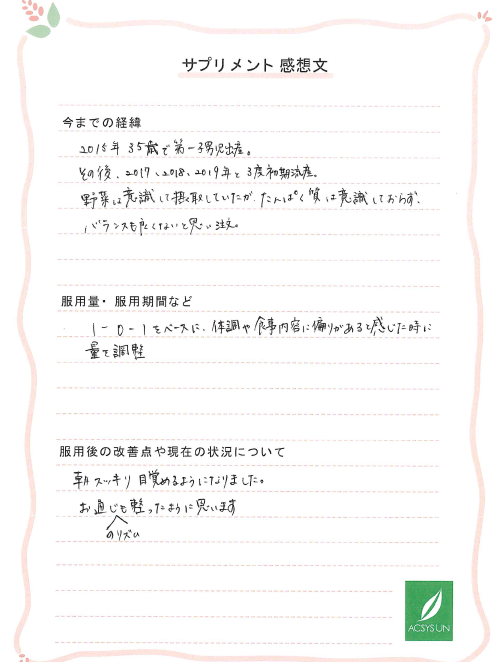 サプリメント 感想文
今までの経緯
2015年 35歳で第一子男児出産。
その後、2017、2018、2019年と3度初期流産。
野菜は意識して摂取していたが、たんぱく質は意識しておらず、
バランスも良くないと思い注文。
服用量・服用期間など
1-0-1をベースに、体調や食事内容に偏りがあると感じた時に
量を調整
服用後の改善点や現在の状況について
朝スッキリ目覚めるようになりました。
お通じも整ったように思います
のリズム
ACSYSUN